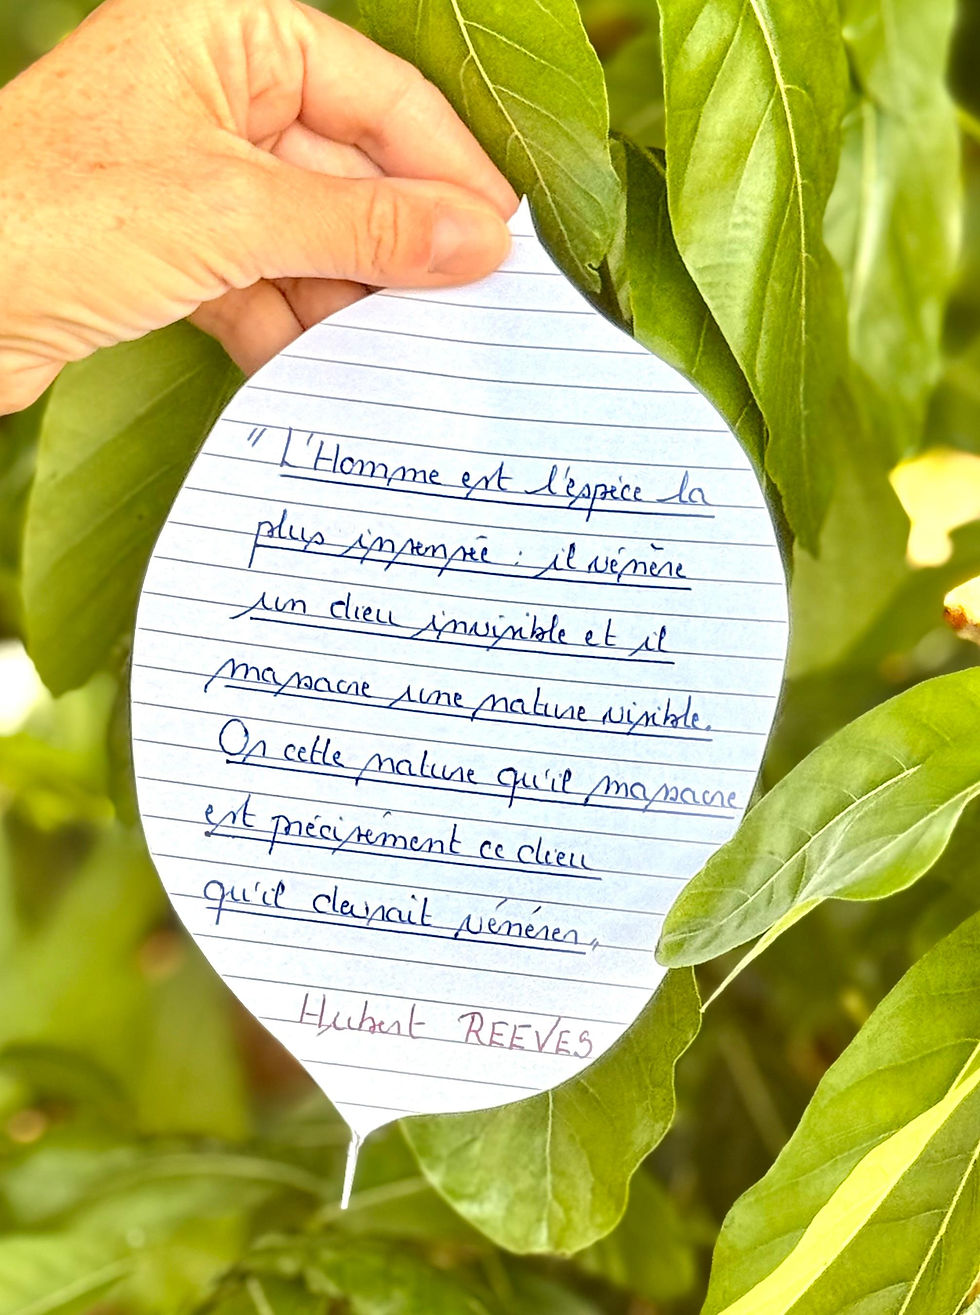 " L'Homme est l'espèce la
plus insensée : il vénère
un dieu invisible et il
massacre une nature visible.
Or cette nature qu'il massacre
est précisément ce dieu
qu'il devrait vénérer "
Hubert REEVES